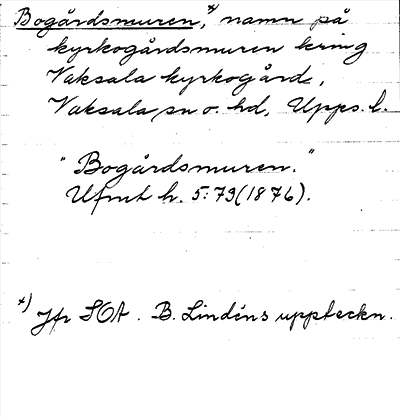 Bogårdsmuren,*) namn på
kyrkogårdsmuren kring
Vaksala kyrkogård,
Vaksala sn o. hd, Upps. l.
"Bogårdsmuren."
Ufmt h. 5:79 (1876).
*) Jfr SOA. B. Lindéns uppteckn.